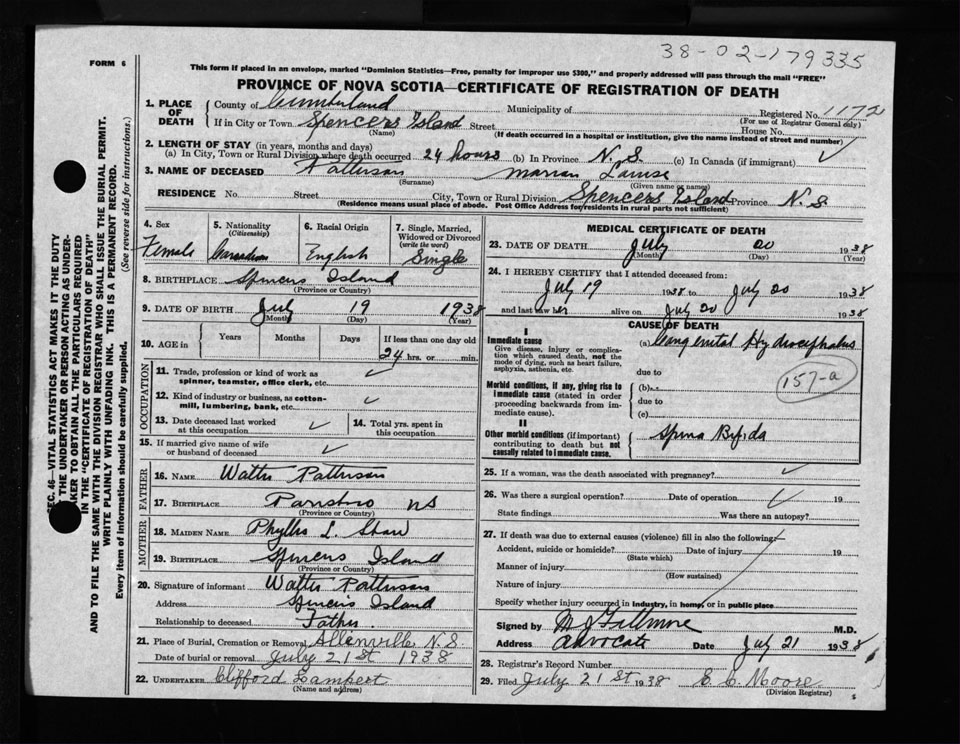 38-02-179335
FORM 6
This form if placed in an envelope, marked "Dominion Statistics—Free, penalty for improper use $300," and properly addressed will pass through the mail "FREE"
PROVINCE OF NOVA SCOTIA—CERTIFICATE OF REGISTRATION OF DEATH
1. PLACE OF DEATH
County of Cumberland Municipality of Registered No. 1172
(For use of Registrar General only)
If in City or Town Spencers Island Street House No.
(Name) (If death occurred in a hospital or institution, give the name instead of street and number)
2. LENGTH OF STAY (in years, months and days)
(a) In City, Town or Rural Division where death occurred 24 hours (b) In Province N.S. (c) In Canada (if immigrant) ✓
3. NAME OF DECEASED Patterson Marian Louise
(Surname) (Given name or names)
RESIDENCE No. Street City, Town or Rural Division Spencers Island Province N.S
(Residence means usual place of abode. Post Office Address for residents in rural parts not sufficient)
4. Sex
Female
5. Nationality
(Citizenship)
Canadian
6. Racial Origin
English
7. Single, Married, Widowed or Divorced
(write the word)
Single
8. BIRTHPLACE Spencers Island
(Province or Country)
9. DATE OF BIRTH July 19 1938
(Month) (Day) (Year)
10. AGE in Years Months Days If less than one day old
24 hrs. or min.
OCCUPATION
11. Trade, profession or kind of work as spinner, teamster, office clerk, etc. ✓
12. Kind of industry or business, as cotton-mill, lumbering, bank, etc. ✓
13. Date deceased last worked at this occupation ✓
14. Total yrs. spent in this occupation
15. If married give name of wife or husband of deceased ✓
FATHER
16. NAME Walter Patterson
17. BIRTHPLACE Parrsboro NS
(Province or Country)
MOTHER
18. MAIDEN NAME Phyllis L. Shaw
19. BIRTHPLACE Spencers Island
(Province or Country)
20. Signature of informant Walter Patterson
Address Spencer's Island
Relationship to deceased Father.
21. Place of Burial, Cremation or Removal Allenville N.S.
Date of burial or removal July 21st 1938
22. UNDERTAKER Clifford Lambert
(Name and address)
MEDICAL CERTIFICATE OF DEATH
23. DATE OF DEATH July 20 1938
(Month) (Day) (Year)
24. I HEREBY CERTIFY that I attended deceased from:
July 19 1938 to July 20 1938
and last saw her alive on July 20 1938
CAUSE OF DEATH
I
Immediate cause
Give disease, injury or complication which caused death, not the mode of dying, such as heart failure, asphyxia, asthenia, etc.
(a) Congenital Hydrocephalus
due to
157-a
Morbid conditions, if any, giving rise to immediate cause (stated in order proceeding backwards from immediate cause).
(b)
due to
(c)
II
Other morbid conditions (if important) contributing to death but not causally related to immediate cause.
Spina Bifida
25. If a woman, was the death associated with pregnancy? ✓
26. Was there a surgical operation? Date of operation ✓ 19
State findings Was there an autopsy?
27. If death was due to external causes (violence) fill in also the following:
Accident, suicide or homicide? Date of injury 19
(State which)
Manner of injury
(How sustained)
Nature of injury
Specify whether injury occurred in industry, in home, or in public place
Signed by M J Fillmore M.D.
Address Advocate Date July 21 1938
28. Registrar's Record Number
29. Filed July 21st 1938 E. C. Moore
(Division Registrar)
5
SEC. 46—VITAL STATISTICS ACT MAKES IT THE DUTY
THE UNDERTAKER OR PERSON ACTING AS UNDER-
TAKER TO OBTAIN ALL THE PARTICULARS REQUIRED
IN THE "CERTIFICATE OF REGISTRATION OF DEATH"
AND TO FILE THE SAME WITH THE DIVISION REGISTRAR WHO SHALL ISSUE THE BURIAL PERMIT.
WRITE PLAINLY WITH UNFADING INK. THIS IS A PERMANENT RECORD.
Every item of information should be carefully supplied. (See reverse side for instructions.)